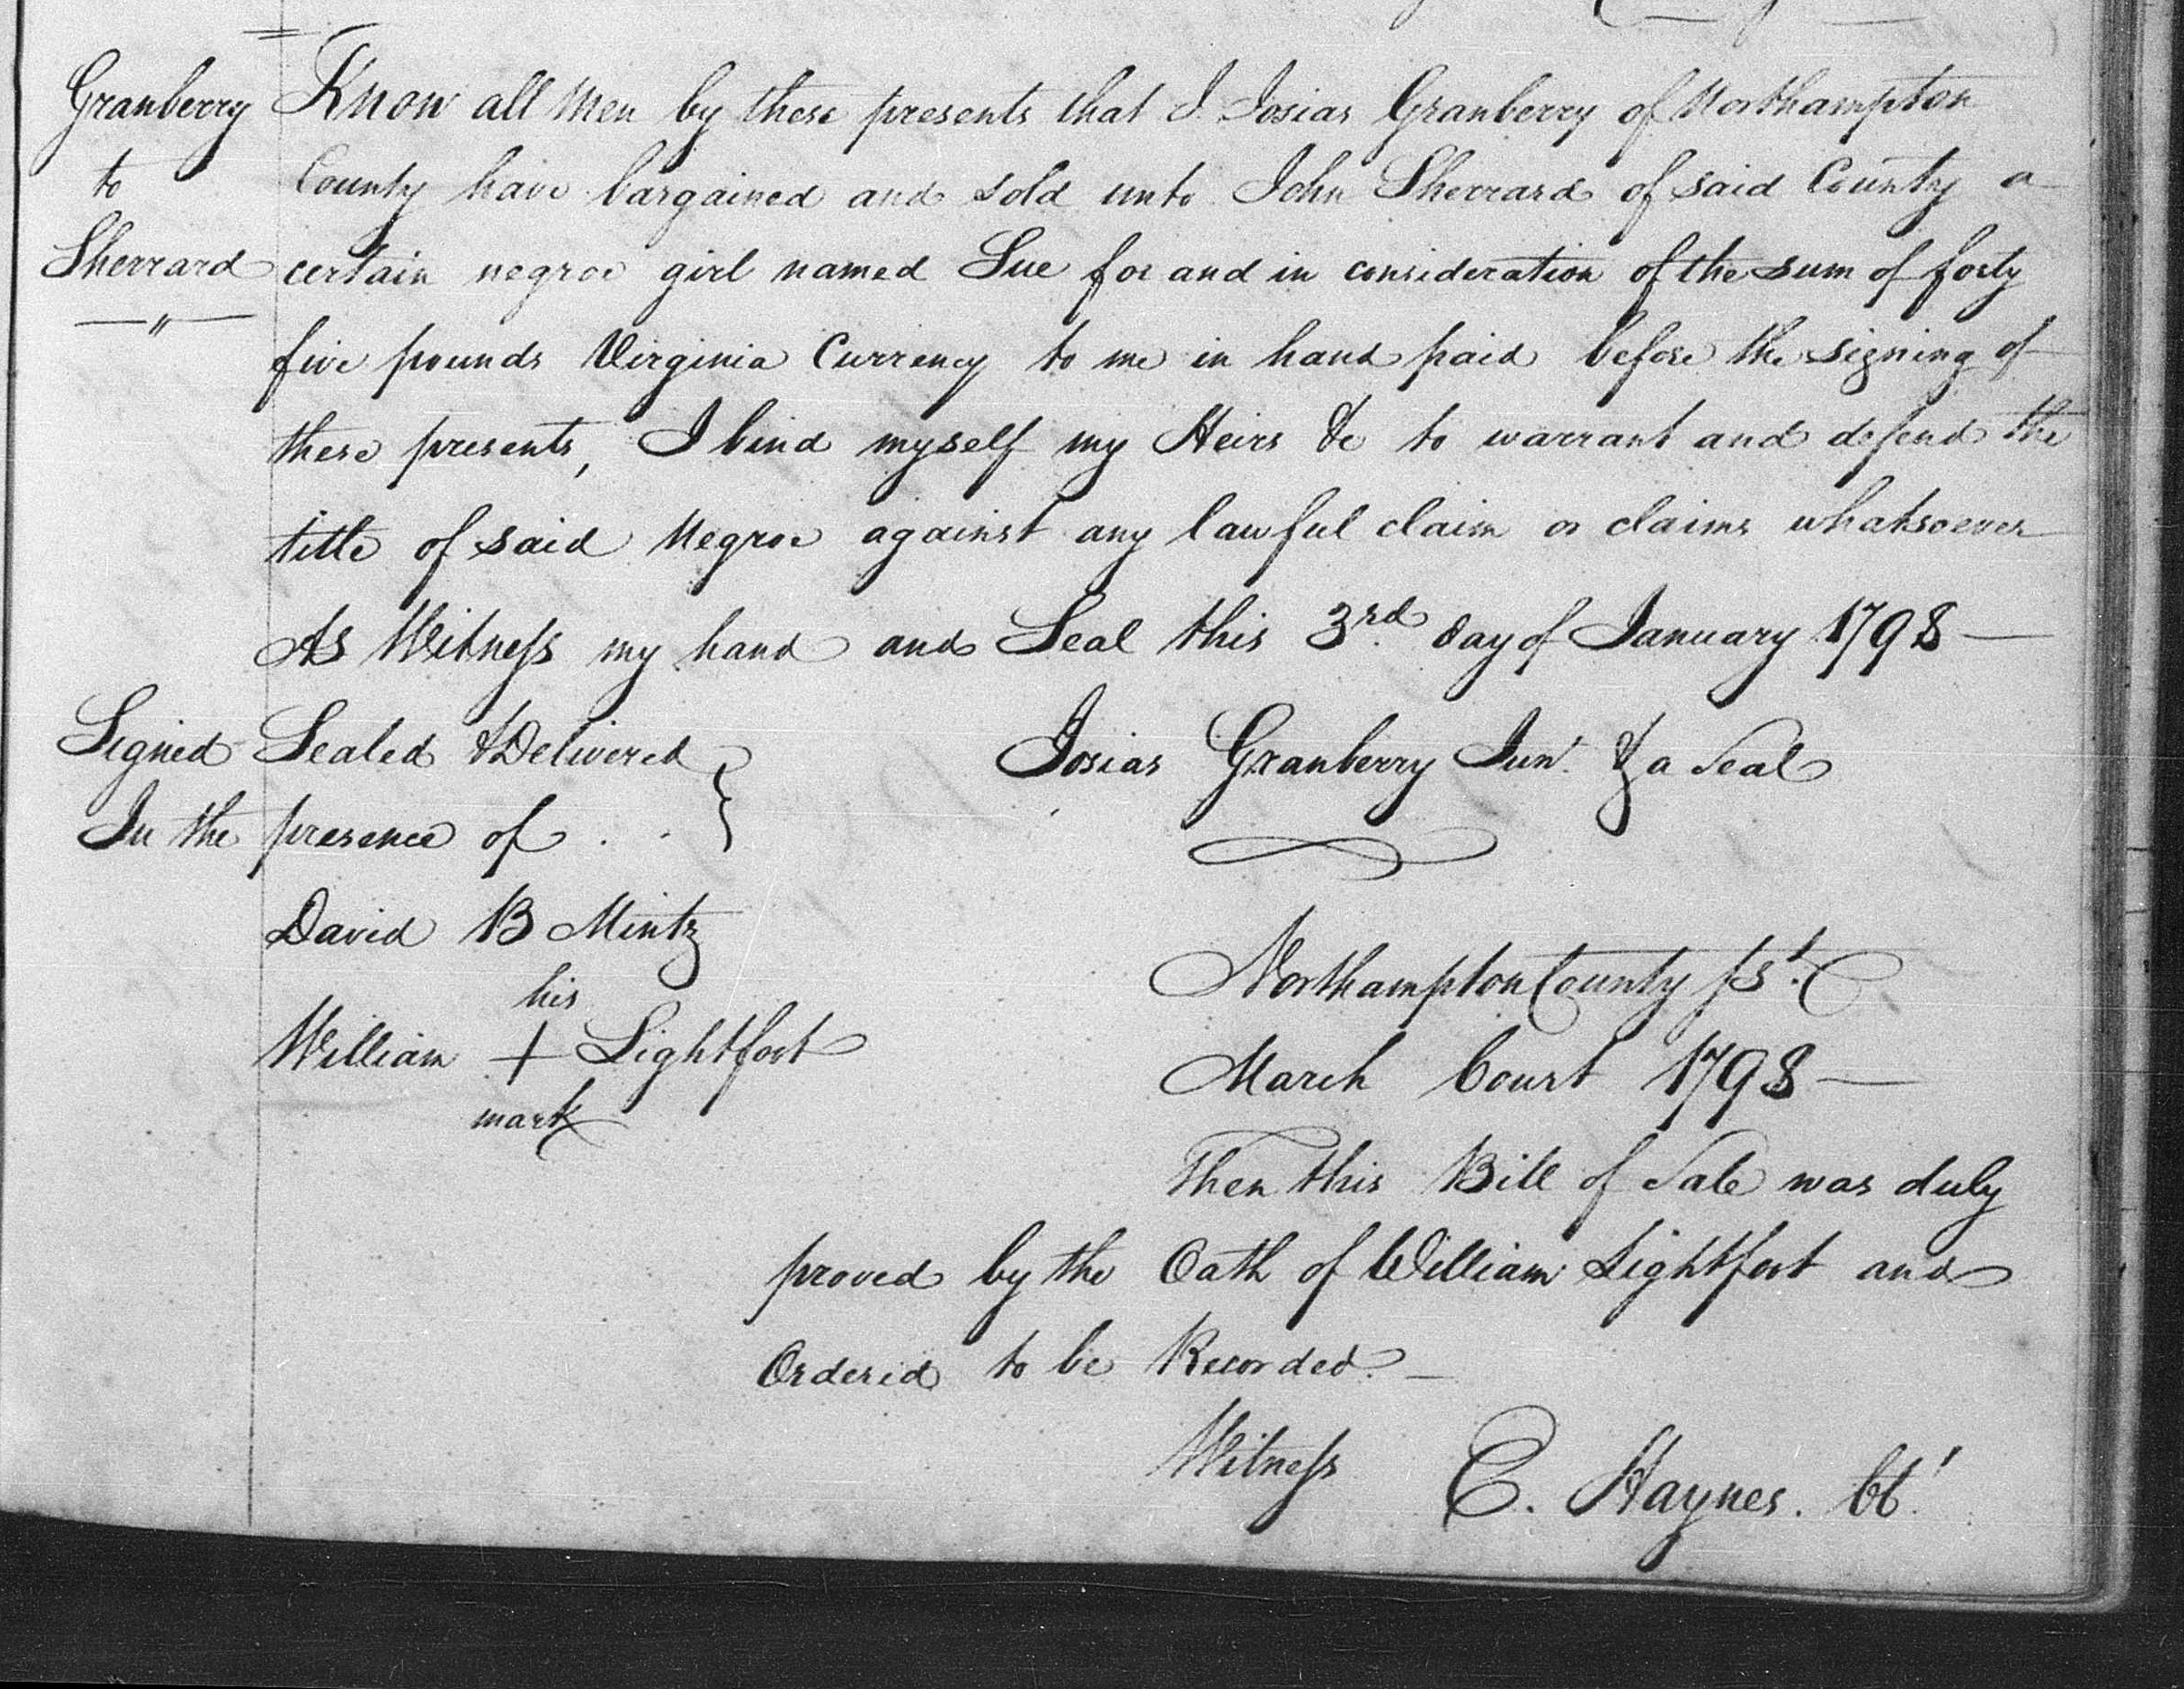 Granberry Know all Men by these presents that I Josias Granberry of Northampton
to County have bargained and sold unto John Sherrard of said County a
Sherrard certain negroe girl named Sue for and in consideration of the sum of forty
five pounds Virginia Currency to me in hand paid before the signing of
these presents, I bind myself my Heirs &c to warrant and defend the
title of said Negroe against any lawful claim or claims whatsoever
As Witness my hand and Seal this 3rd. day of January 1798 —
Signed Sealed & Delivered } Josias Granberry Junr. & a Seal
In the presence of . .
David B Mintz
his Northampton County
William + Lightfoot March Court 1798 —
mark
Then this Bill of Sale was duly
proved by the Oath of William Lightfoot and
Ordered to be Recorded. —
Witness E. Haynes.